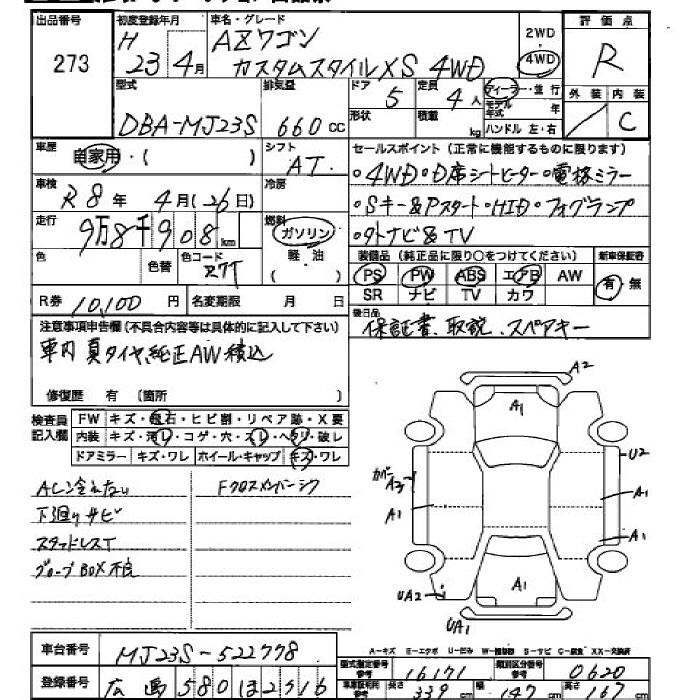 出品番号 初度登録年月 車名・グレード 2WD 評価点
273 H 23年 4月 AZワゴン カスタムスタイルXS 4WD 4WD R
型式 排気量 ドア 5 定員 4人 ディーラー・並行 外装 内装
DBA-MJ23S 660cc 形状 積載 kg モデル年式 年 ハンドル 左・右 / C
車歴 自家用・( ) シフト AT. セールスポイント(正常に機能するものに限ります)
車検 R8年 4月(26日) 冷房 ・4WD・D席シートヒーター・電格ミラー
走行 9万8千908km 燃料 ガソリン 軽油 ・Sキー&Pスタート・HID・フォグランプ
・外ナビ&TV
色 色替 色コード Z7T 装備品(純正品に限り○をつけてください) 新車保証書
PS PW ABS エアB AW 有・無
SR ナビ TV カワ
R券 10,100円 名変期限 月 日 後日品
保証書、取説、スペアキー
注意事項申告欄(不具合内容等は具体的に記入して下さい)
車内 夏タイヤ、純正AW積込
修復歴 有 (箇所 )
検査員記入欄 FW キズ・飛石・ヒビ割・リペア跡・X要
内装 キズ・汚レ・コゲ・穴・スレ・ヘタリ・破レ
ドアミラー キズ・ワレ ホイール・キャップ キズ・ワレ
ACシ含れない Fクロスメンバーシワ
下廻りサビ
スタッドレスT
グローブBOX不良
A2
A1
U2
カバー A3
A1
A1
A1
UA2
A1
UA1
A-キズ E-エクボ U-凹み W-補修跡 S-サビ C-腐食 XX-交換済
車台番号 MJ23S-522778 型式指定番号 参考 16171 類別区分番号 参考 0620
登録番号 広島 580 ほ 2516 車庫証明用 参考 長さ 339cm 幅 147cm 高さ 167cm